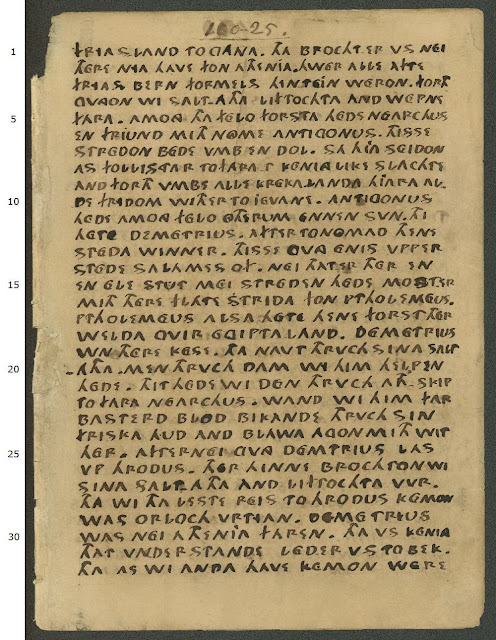 100-25.
FRIASLAND TO GANA. THA BROCHTER VS NEI
THERE NIA HAVE FON ATHENIA. HWER ALLE AFTE
FRIAS BERN FORMELS HINTEIN WERON. FORTH
GVNGON WI SALTATHA LITTOCHTA AND WEPNE
5 FARA. AMONG THA FELO FORSTA HEDE NEARCHUS
EN FRIUND MITH NOME ANTIGONUS. THISSE
STREDON BEDE VMB EN DOL. SA HIA SEIDON
AS FOLLISTAR TO FARA-T KENINGLIKE SLACHTE
AND FORTH VMBE ALLE KREKA LANDA HIARA AL
10 DE FRIDOM WITHER TO JEVANE. ANTIGONUS
HEDE AMONG FELO OTHERUM ENNEN SVN. THI
HETE DEMETRIUS. AFTER TONOMAD THENE
STEDA WINNER. THISSE GVNG ENIS VPPER
STEDE SALAMIS OF. NEI THATER THER EN
15 EN ELE STUT MEI STREDEN HEDE MOSTER
MITH THERE FLATE STRIDA FON PTHOLEMEUS.
PTHOLEMEUS ALSA HETE THENE FORST THER
WELDA OVIR EGIPTALAND. DEMETRIUS
WN THERE KESE. THA NAVT THRVCH SINA SALT
20 -ATHA. MEN THRVCH DAM WI HIM HELPEN
HEDE. THIT HEDE WI DEN THRVCH ATHSKIP
TO FARA NEARCHUS. WAND WI HIM FAR
BASTERD BLOD BIKANDE THRVCH SIN
FRISKA HUD AND BLAWA AGON MITH WIT
25 HER. AFTERNEI GVNG DEMETRIUS LAS
VP HRODUS. THER HINNE BROCHTON WI
SINA SALTATHA AND LITTOCHTA WR.
THA WI THA LESTE REIS TO HRODUS KEMON
WAS ORLOCH VRTIAN. DEMETRIUS
30 WAS NEI ATHENIA FAREN. THA VS KENING
THAT VNDERSTANDE LEDER VS TOBEK.
THA AS WI ANDA HAVE KEMON WERE